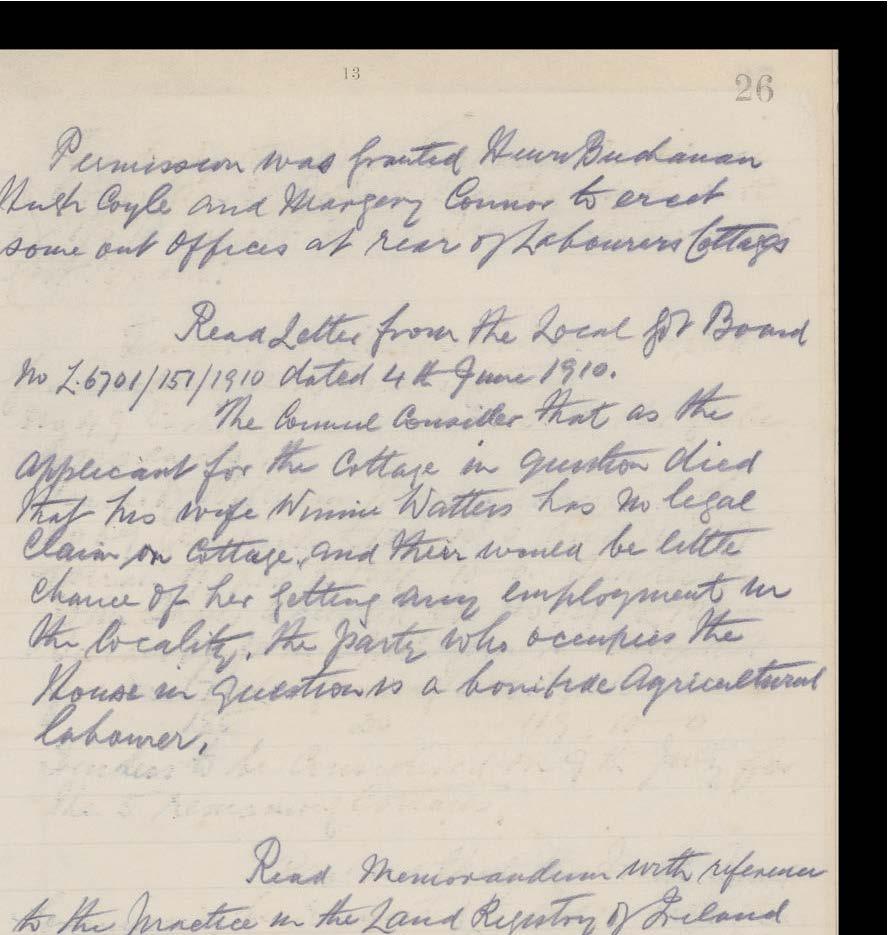 13
26
Permission was granted Henry Buchanan
Hugh Coyle and Margery Connor to erect
some out offices at rear of Labourers Cottags
Read Letter from the Local Gvt Board
No L.6701/151/1910 dated 4th June 1910.
The Council Consider that as the
applicant for the Cottage in question died
that his wife Winnie Watters has no legal
Claim on Cottage, and their would be little
chance of her getting any employment in
the locality, the party who occupies the
House in question is a bonifide Agricultural
labourer.
Read Memorandum with reference
to the practice in the Land Registry of Ireland